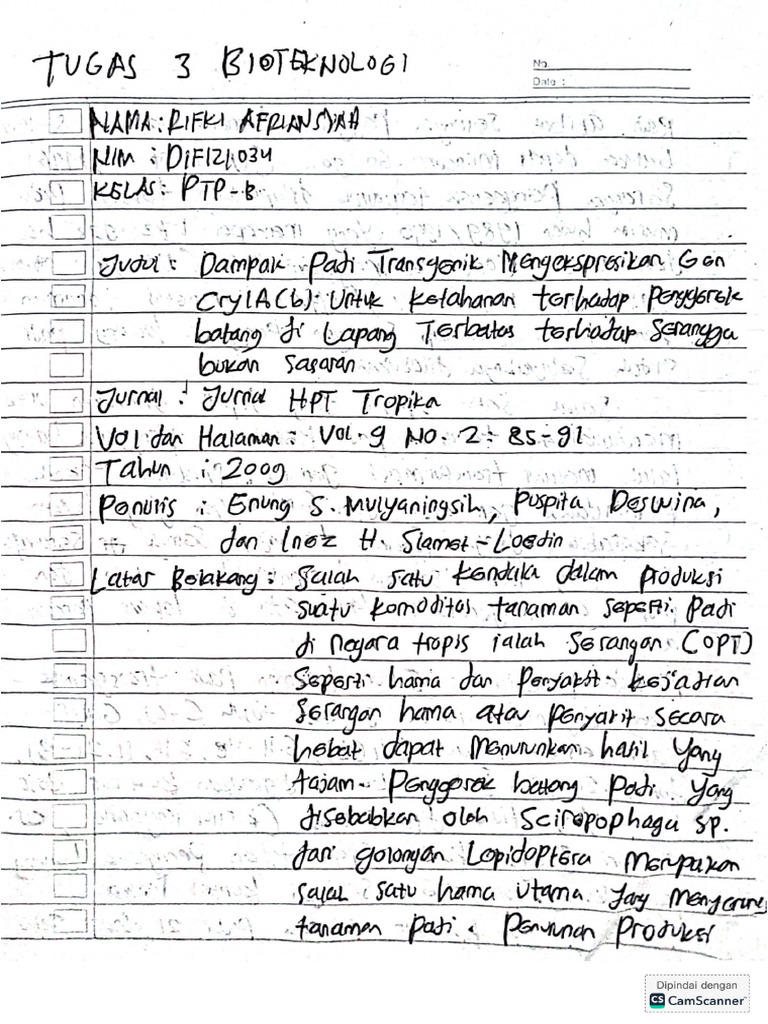 TUGAS 3 BIOTEKNOLOGI
No.
Date :
NAMA : RIFKI AFRIANSYAH
NIM : D1F121034
KELAS : PTP-B
Judul : Dampak Padi Transgenik Mengekspresikan Gen
Cry1A(b) Untuk ketahanan terhadap Penggerek
batang di Lapang Terbatas terhadap Serangga
bukan Sasaran
Jurnal : Jurnal HPT Tropika
Vol dan Halaman : Vol. 9 No. 2 : 85-91
Tahun : 2009
Penulis : Enung S. Mulyaningsih, Puspita Deswina,
dan Inez H. Slamet-Loedin
Latar Belakang : Salah satu kendala dalam produksi
suatu komoditas tanaman seperti Padi
di negara tropis ialah Serangan (OPT)
Seperti hama dan Penyakit. kejadian
Serangan hama atau Penyakit Secara
hebat dapat Menurunkan hasil Yang
tajam. Penggerek batang Padi Yang
disebabkan oleh Scirpophaga sp.
dari golongan Lepidoptera Merupakan
salah satu hama utama Yang Menyerang
tanaman Padi. Penurunan Produksi
Dipindai dengan
CS CamScanner